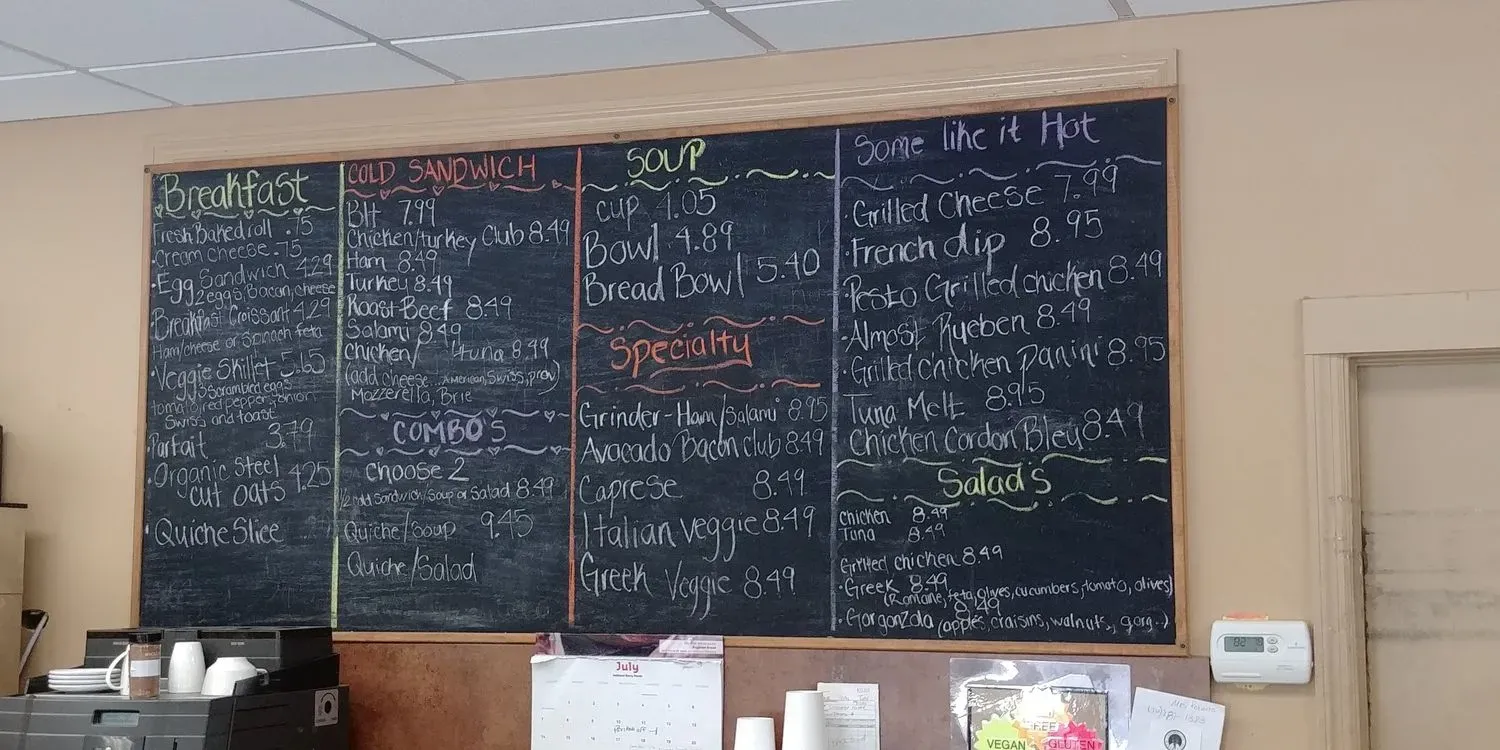 Breakfast
Fresh Baked roll .75
Cream cheese .75
Egg Sandwich 4.29
2 eggs, Bacon, cheese
Breakfast Croissant 4.29
Ham/cheese or Spinach feta
Veggie Skillet 5.65
3 Scrambled eggs
tomato, red pepper, onion
Swiss and toast
Parfait 3.79
Organic Steel
cut oats 4.25
Quiche Slice
COLD SANDWICH
Blt 7.99
Chicken/turkey Club 8.49
Ham 8.49
Turkey 8.49
Roast Beef 8.49
Salami 8.49
Chicken/ tuna 8.49
(add cheese American, Swiss, prov)
Mozzerella, Brie
COMBO'S
Choose 2
Sandwich/Soup or Salad 8.49
Quiche/Soup 9.45
Quiche/Salad
SOUP
Cup 4.05
Bowl 4.89
Bread Bowl 5.40
Specialty
Grinder-Ham/Salami 8.95
Avacado Bacon Club 8.49
Caprese 8.49
Italian veggie 8.49
Greek Veggie 8.49
Some like it Hot
Grilled Cheese 7.99
French dip 8.95
Pesto Grilled chicken 8.49
Almost Rueben 8.49
Grilled chicken panini 8.95
Tuna Melt 8.95
Chicken Cordon Bleu 8.49
Salad's
Chicken 8.49
Tuna 8.49
Grilled chicken 8.49
Greek 8.49
(Romaine, feta, olives, cucumbers, tomato, olives)
8.49
Gorgonzola (apples, craisins, walnuts, gorg..)
July
VEGAN
GLUTEN